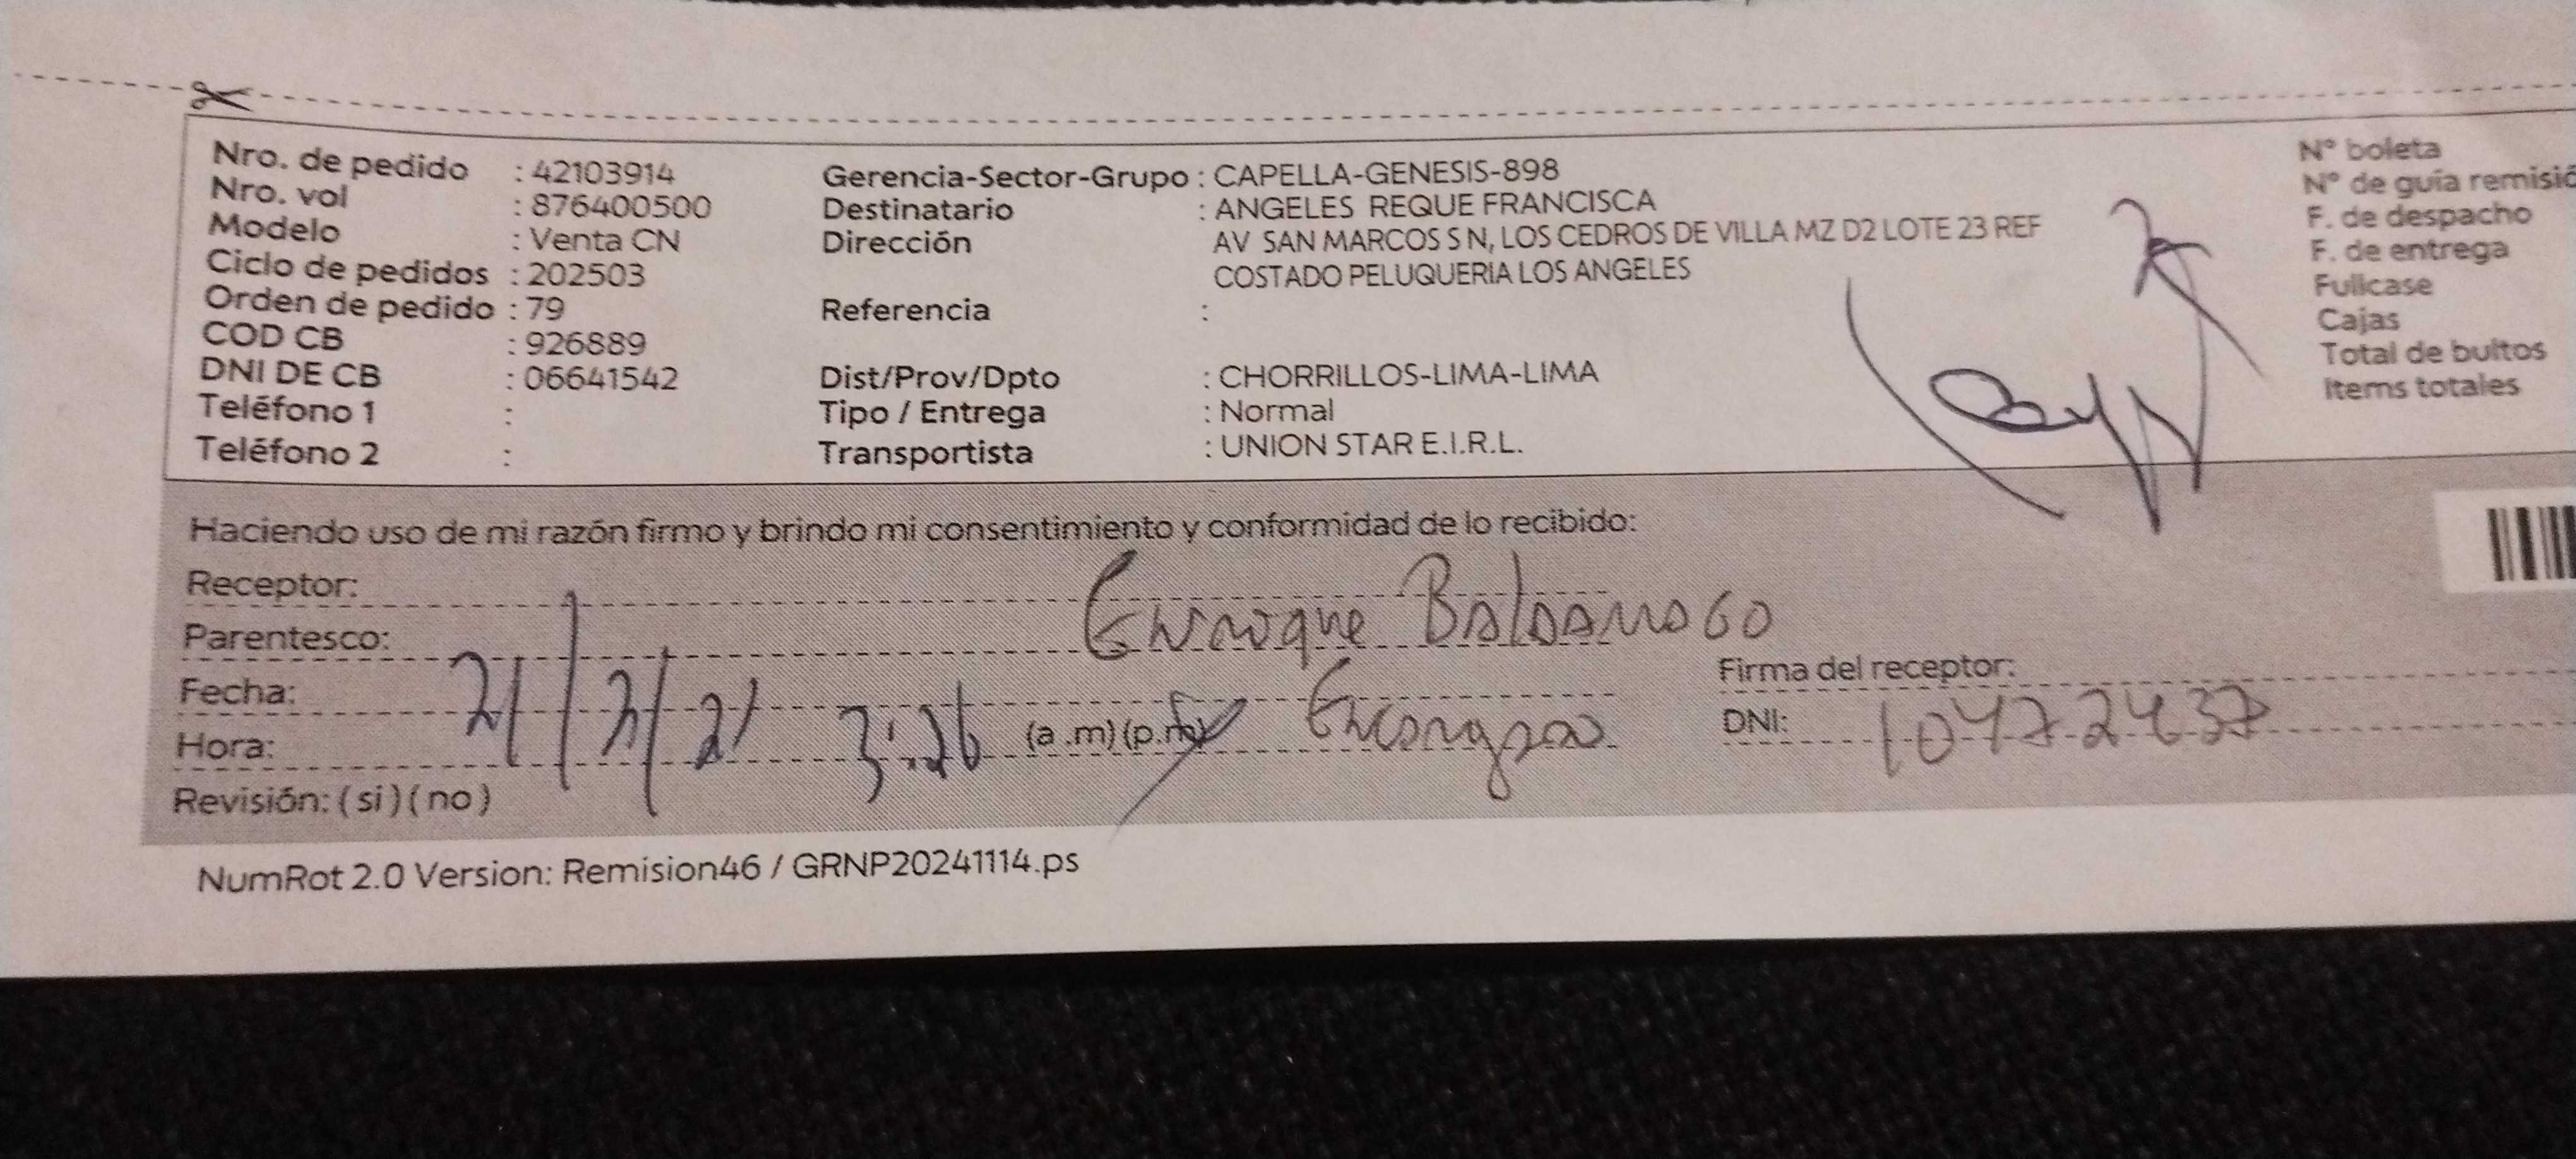 Nro. de pedido : 42103914
Nro. vol : 876400500
Modelo : Venta CN
Ciclo de pedidos : 202503
Orden de pedido : 79
COD CB : 926889
DNI DE CB : 06641542
Teléfono 1 :
Teléfono 2 :
Gerencia-Sector-Grupo : CAPELLA-GENESIS-898
Destinatario : ANGELES REQUE FRANCISCA
Dirección AV SAN MARCOS S N, LOS CEDROS DE VILLA MZ D2 LOTE 23 REF
COSTADO PELUQUERIA LOS ANGELES
Referencia :
Dist/Prov/Dpto : CHORRILLOS-LIMA-LIMA
Tipo / Entrega : Normal
Transportista : UNION STAR E.I.R.L.
N° boleta
N° de guía remisió
F. de despacho
F. de entrega
Fullcase
Cajas
Total de bultos
Items totales
Haciendo uso de mi razón firmo y brindo mi consentimiento y conformidad de lo recibido:
Receptor:
Enrique
Parentesco:
Fecha:
Hora: 3:26 (a .m) (p.m)
Revisión: ( si ) ( no )
Firma del receptor:
DNI: 10472437
NumRot 2.0 Version: Remision46 / GRNP20241114.ps